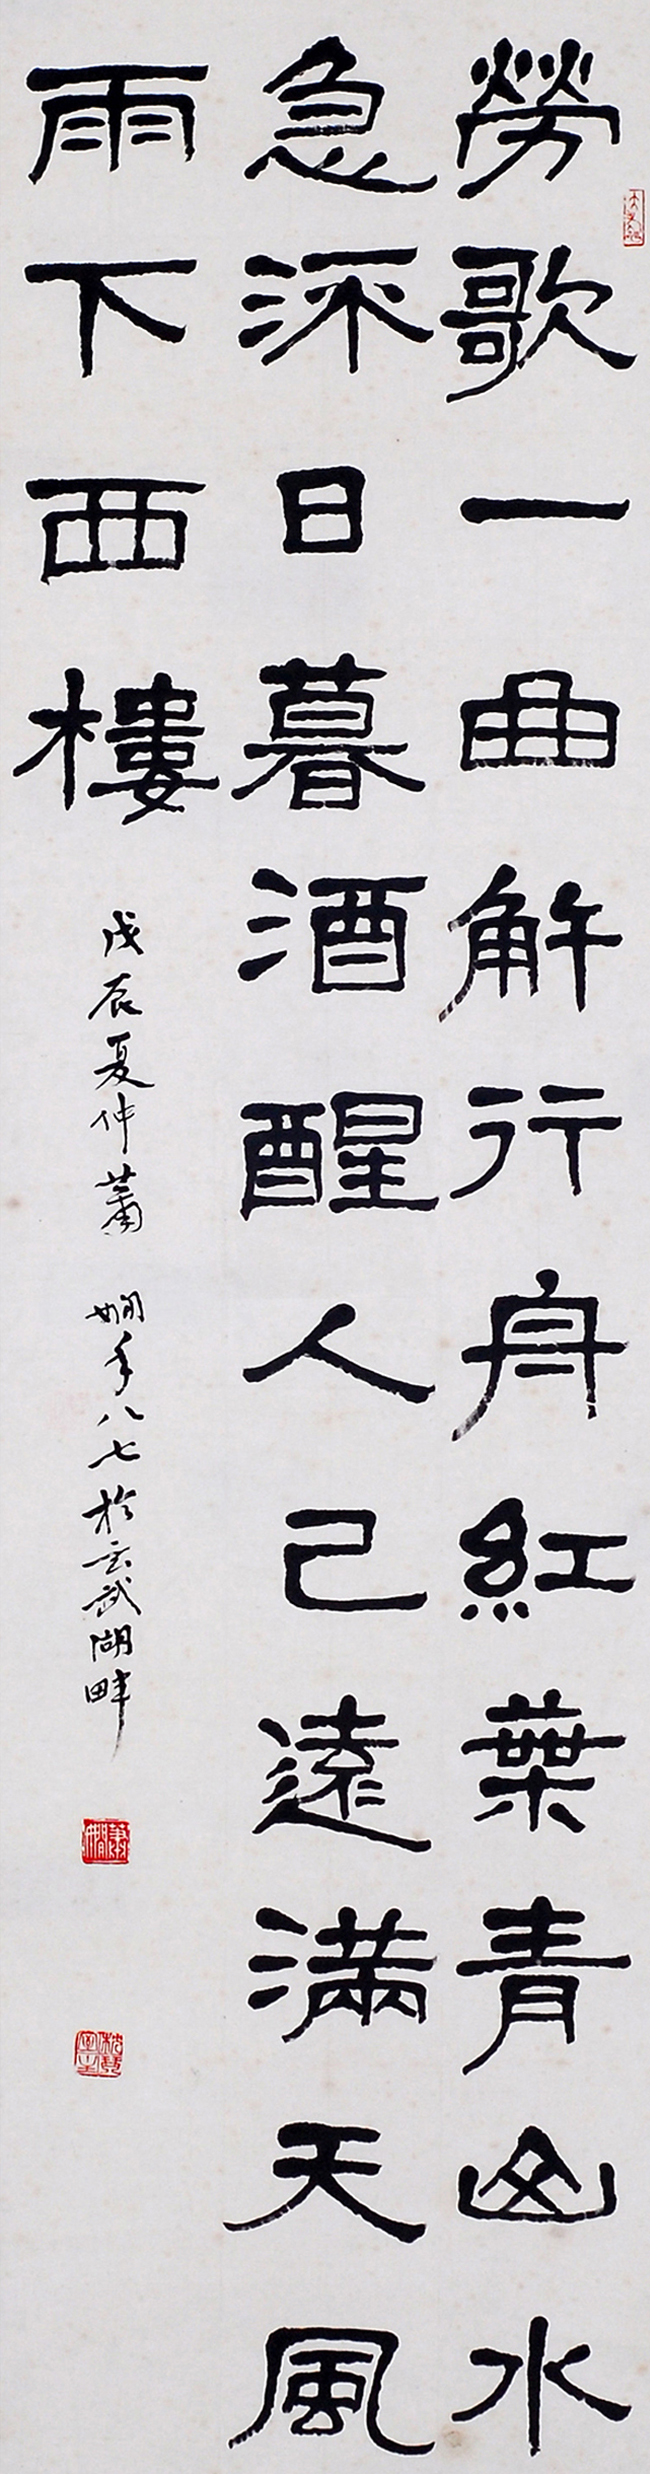 勞歌一曲解行舟紅葉青山水
急流日暮酒醒人已遠滿天風
雨下西樓
戊辰夏仲蕭嫻年八七於玄武湖畔
蕭嫻
枕琴室主